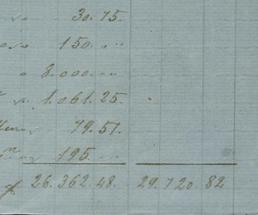 30. 75
150. ...
8.000. ...
1.061. 25.
79. 51.
195. ...
26. 362. 48. 29. 720. 82